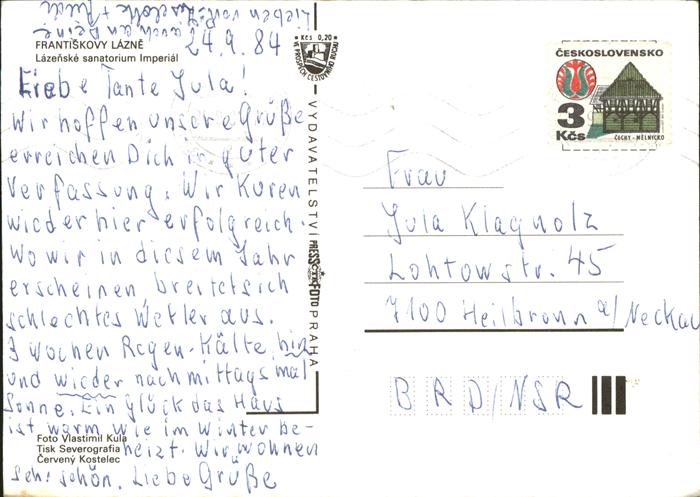 FRANTIŠKOVY LÁZNĚ
Lázeňské sanatorium Imperiál
24.9.84
Liebe Tante Jula!
Wir hoffen unsere Grüße
erreichen Dich in guter
Verfassung. Wir Kuren
wieder hier erfolgreich.
Wo wir in diesem Jahr
erscheinen breitet sich
schlechtes Wetter aus.
3 Wochen Regen-Kälte hin
und wieder nachmittags mal
Sonne. Ein Glück das Haus
ist warm wie im Winter be-
heizt. Wir wohnen
sehr schön. Liebe Grüße
auch an Deine
Lieben von
Foto Vlastimil Kula
Tisk Severografia
Červený Kostelec
Kčs 0,20
VE PROSPĚCH CESTOVNÍHO RUCHU
VYDAVATELSTVÍ PRESSFOTO PRAHA
ČESKOSLOVENSKO
3 Kčs
ČECHY - MĚLNICKO
Frau
Jula Klagholz
Lohtowstr. 45
7100 Heilbronn a/Neckau
BRD/NSR